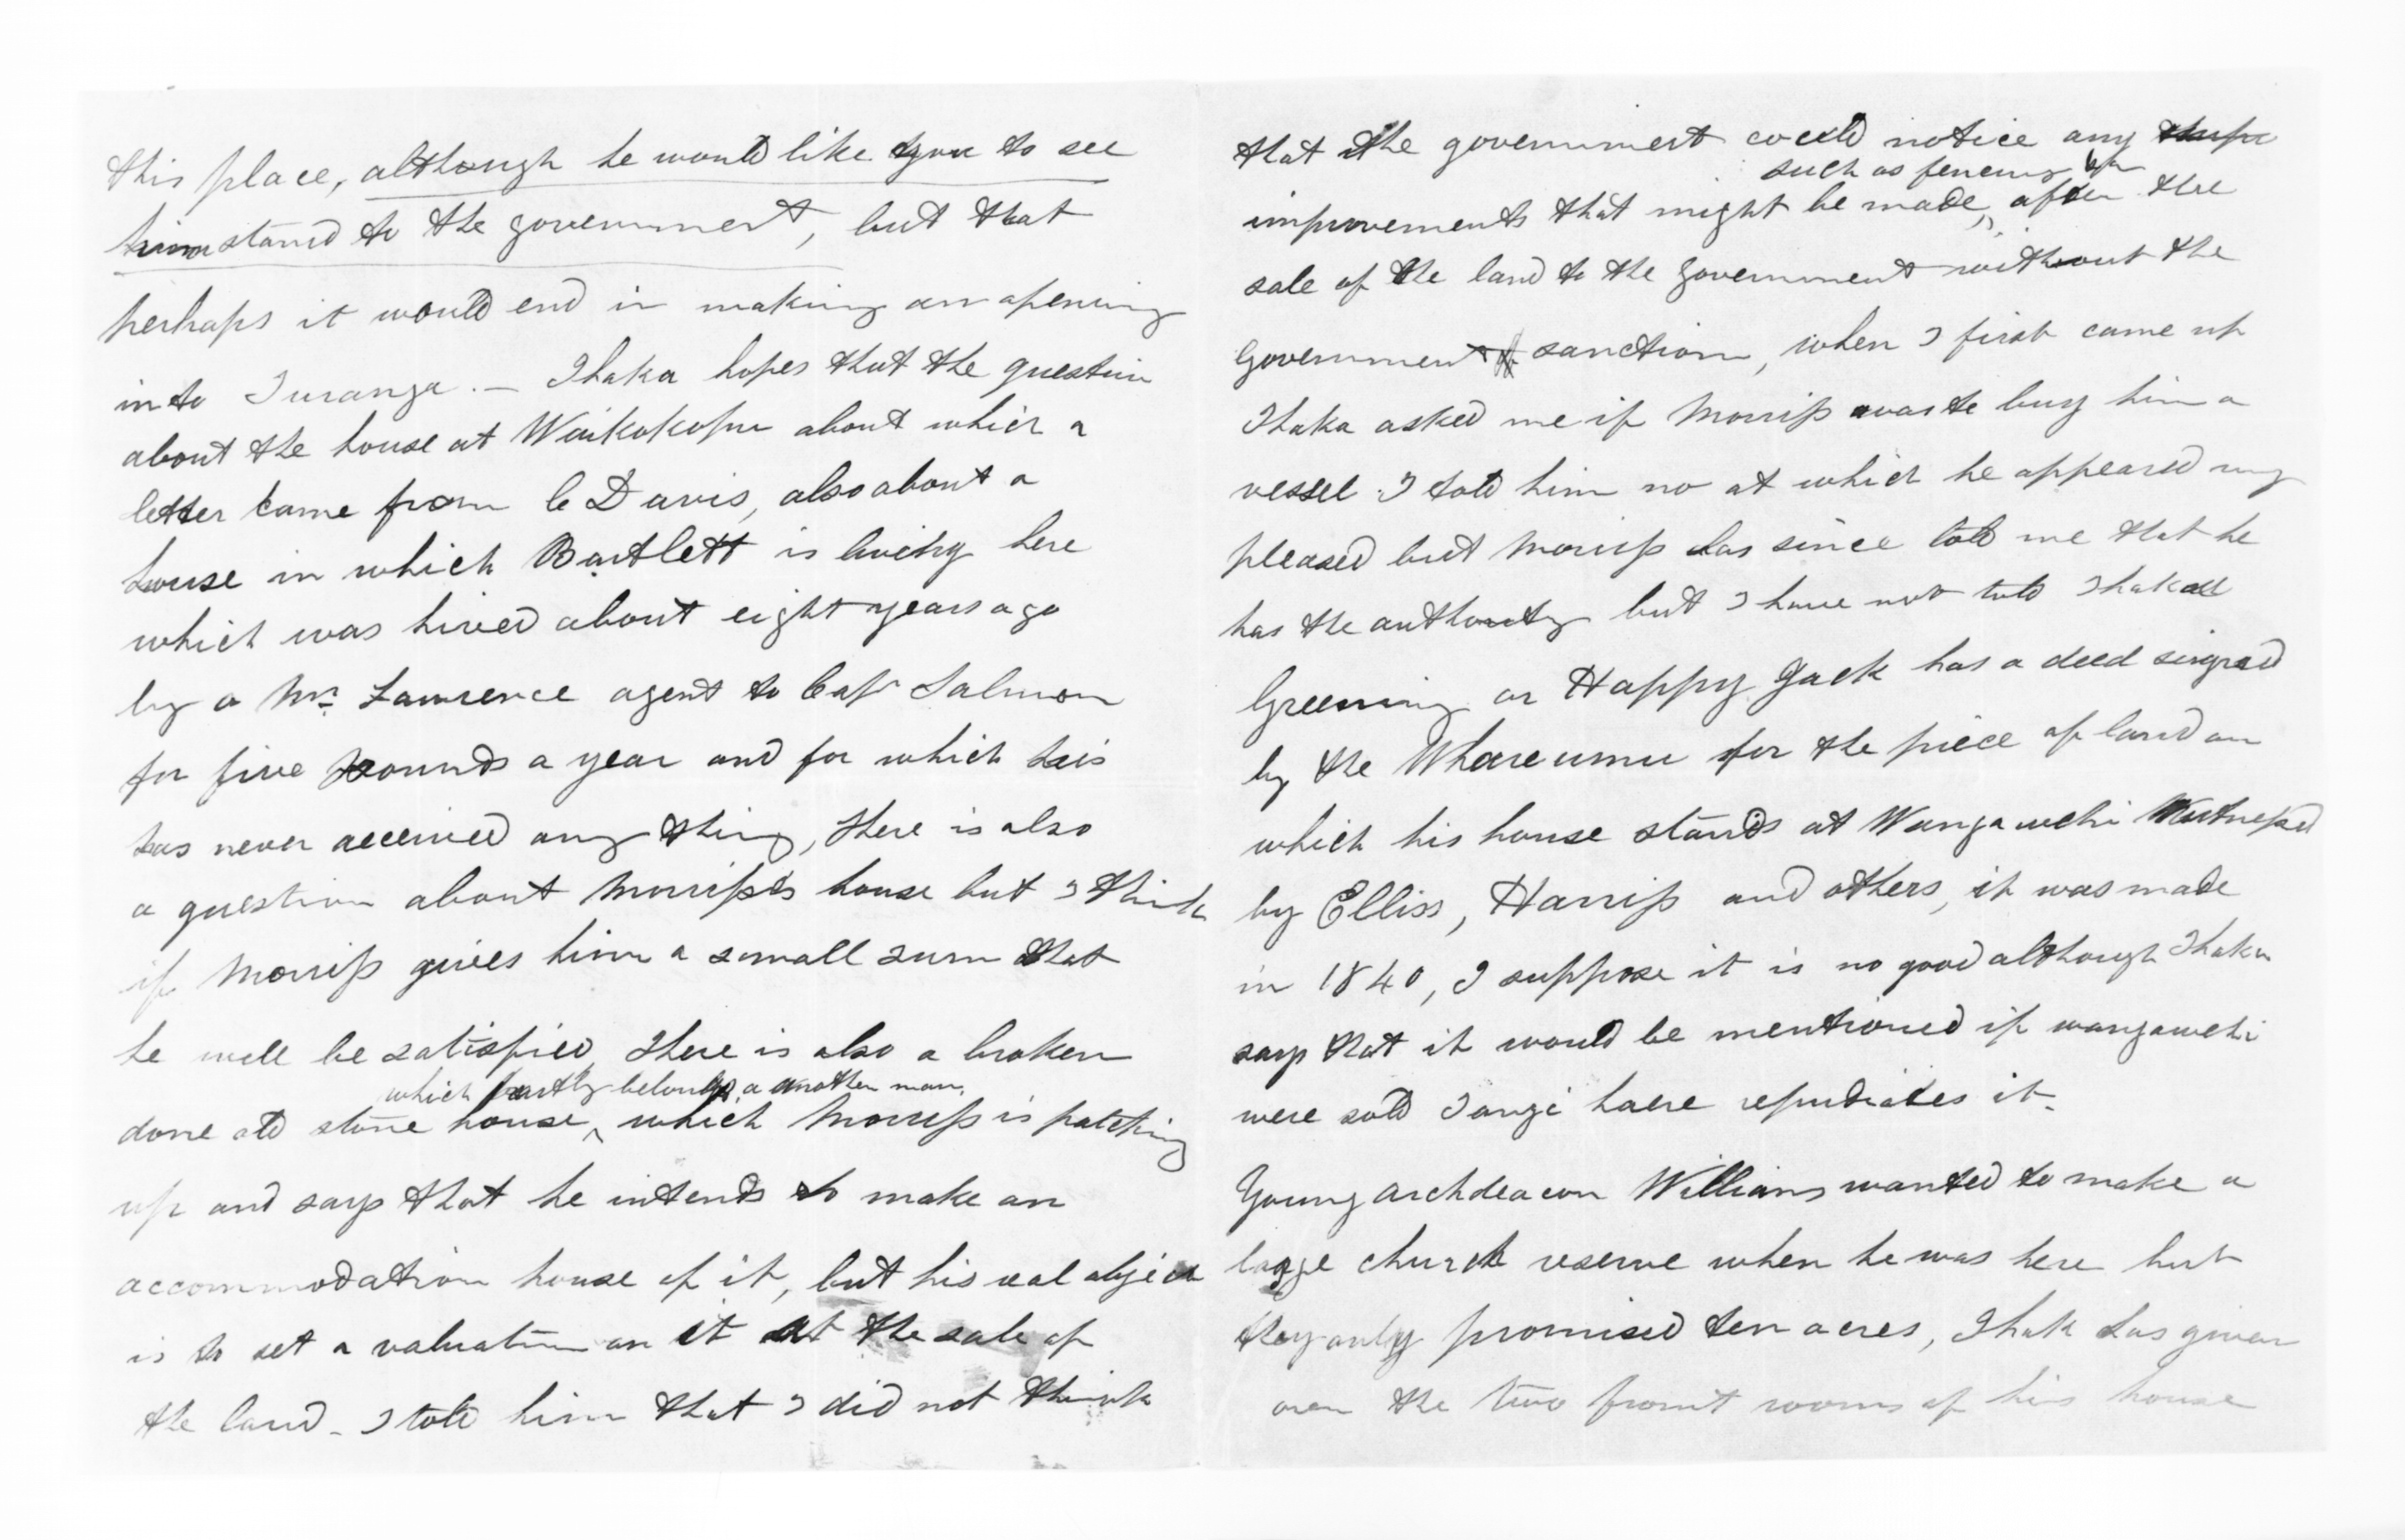 this place, although he would like you to see
him stand to the government, but that
perhaps it would end in making an opening
into Turanga. — Ihaka hopes that the question
about the house at Waikokopu about which a
letter came from C Davis, also about a
house in which Bartlett is living here
which was hired about eight years ago
by a Mr. Lawrence agent to Capt Salmon
for five pounds a year and for which his
has never received any thing, there is also
a question about Morriss's house but I think
if Morriss gives him a small sum that
he will be satisfied, there is also a broken
which partly belongs a another man
done old stone house, which Morriss is patching
up and says that he intends to make an
accommodation house of it, but his real object
is to set a valuation on it at the sale of
the land - I told him that I did not think
that the government could notice any
such as fencing up
improvements that might be made, after the
sale of the land to the government without the
government sanction, when I first came up
Ihaka asked me if Morriss was to buy him a
vessel. I told him no at which he appeared
pleased but Morriss has since told me that he
has the authority but I have not told Ihaka
Greening or Happy Jack has a deed singned
by the Whareumu for the piece of land on
which his house stands at Wangawehi Wittnessed
by Elliss, Harriss and others, it was made
in 1840, I suppose it is no good although Ihaka
says that it would be mentioned if wangawehi
were sold Tangi haere repudiates it.
Young archdeacon Williams wanted to make a
large church reserve when he was here but
they only promised ten acres, Ihak has given
over the two front rooms of his house